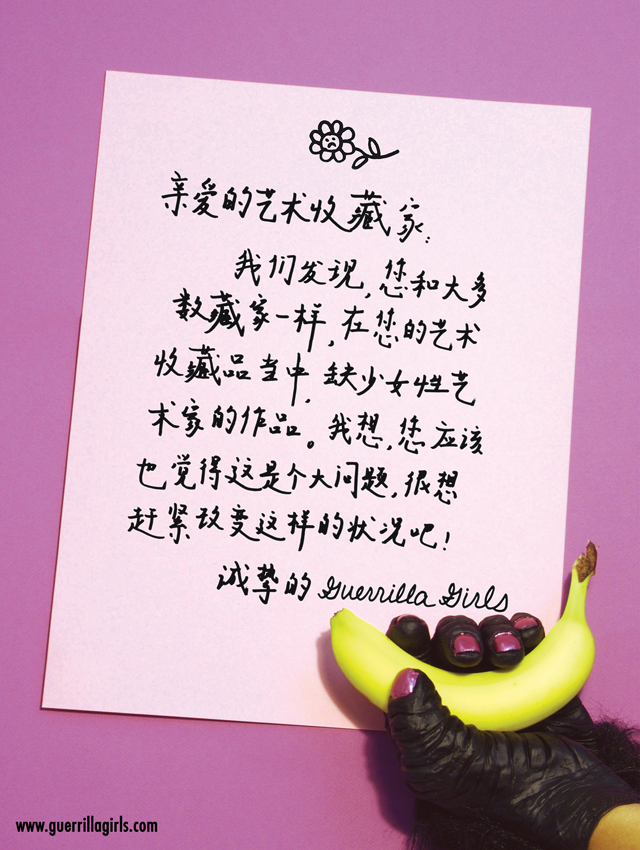 亲爱的艺术收藏家:
我们发现,您和大多
数藏家一样,在您的艺术
收藏品当中,缺少女性艺
术家的作品。我想,您应该
也觉得这是个大问题,很想
赶紧改变这样的状况吧!
诚挚的 Guerrilla Girls
www.guerrillagirls.com